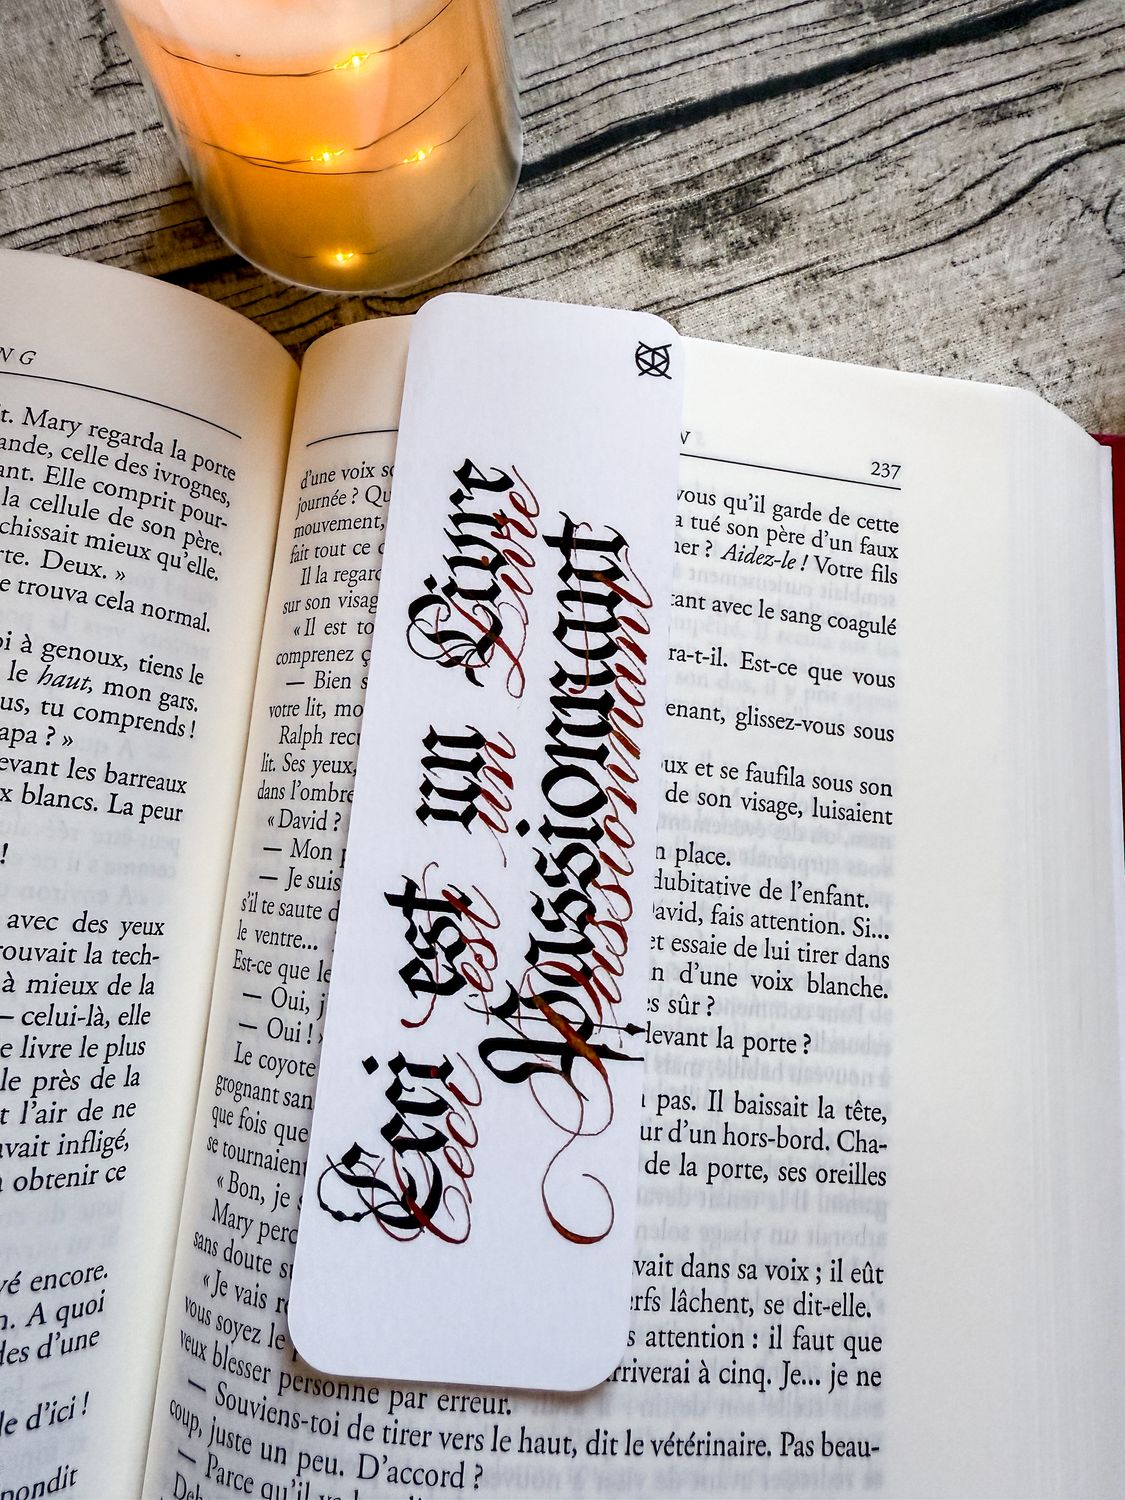 NG
t. Mary regarda la porte
ande, celle des ivrognes,
ant. Elle comprit pour-
la cellule de son père.
chissait mieux qu'elle.
rte. Deux. »
e trouva cela normal.
oi à genoux, tiens le
le haut, mon gars.
us, tu comprends !
apa ? »
evant les barreaux
x blancs. La peur
!
avec des yeux
rouvait la tech-
à mieux de la
— celui-là, elle
e livre le plus
le près de la
t l'air de ne
avait infligé,
obtenir ce
vé encore.
n. A quoi
des d'une
le d'ici !
pondit
Ceci est un Livre
Ceci est un Livre
Passionnant
Passionnant
237
d'une voix so
vous qu'il garde de cette
journée ? Qu
a tué son père d'un faux
mouvement,
ner ? Aidez-le ! Votre fils
fait tout ce
Il la regard
tant avec le sang coagulé
sur son visag
« Il est to
ra-t-il. Est-ce que vous
comprenez ç
— Bien s
enant, glissez-vous sous
votre lit, mo
Ralph recu
oux et se faufila sous son
lit. Ses yeux,
de son visage, luisaient
dans l'ombre
« David ?
— Mon p
n place.
— Je suis
dubitative de l'enfant.
s'il te saute d
avid, fais attention. Si...
le ventre...
et essaie de lui tirer dans
Est-ce que le
n d'une voix blanche.
— Oui, j
es sûr ?
— Oui !
devant la porte ?
Le coyote
grognant san
pas. Il baissait la tête,
que fois que
ur d'un hors-bord. Cha-
se tournaient
de la porte, ses oreilles
« Bon, je s
Mary perc
sans doute su
vait dans sa voix ; il eût
« Je vais r
erfs lâchent, se dit-elle.
vous soyez le
s attention : il faut que
veux blesser personne par erreur.
rriverai à cinq. Je... je ne
— Souviens-toi de tirer vers le haut, dit le vétérinaire. Pas beau-
coup, juste un peu. D'accord ?
— Parce qu'il